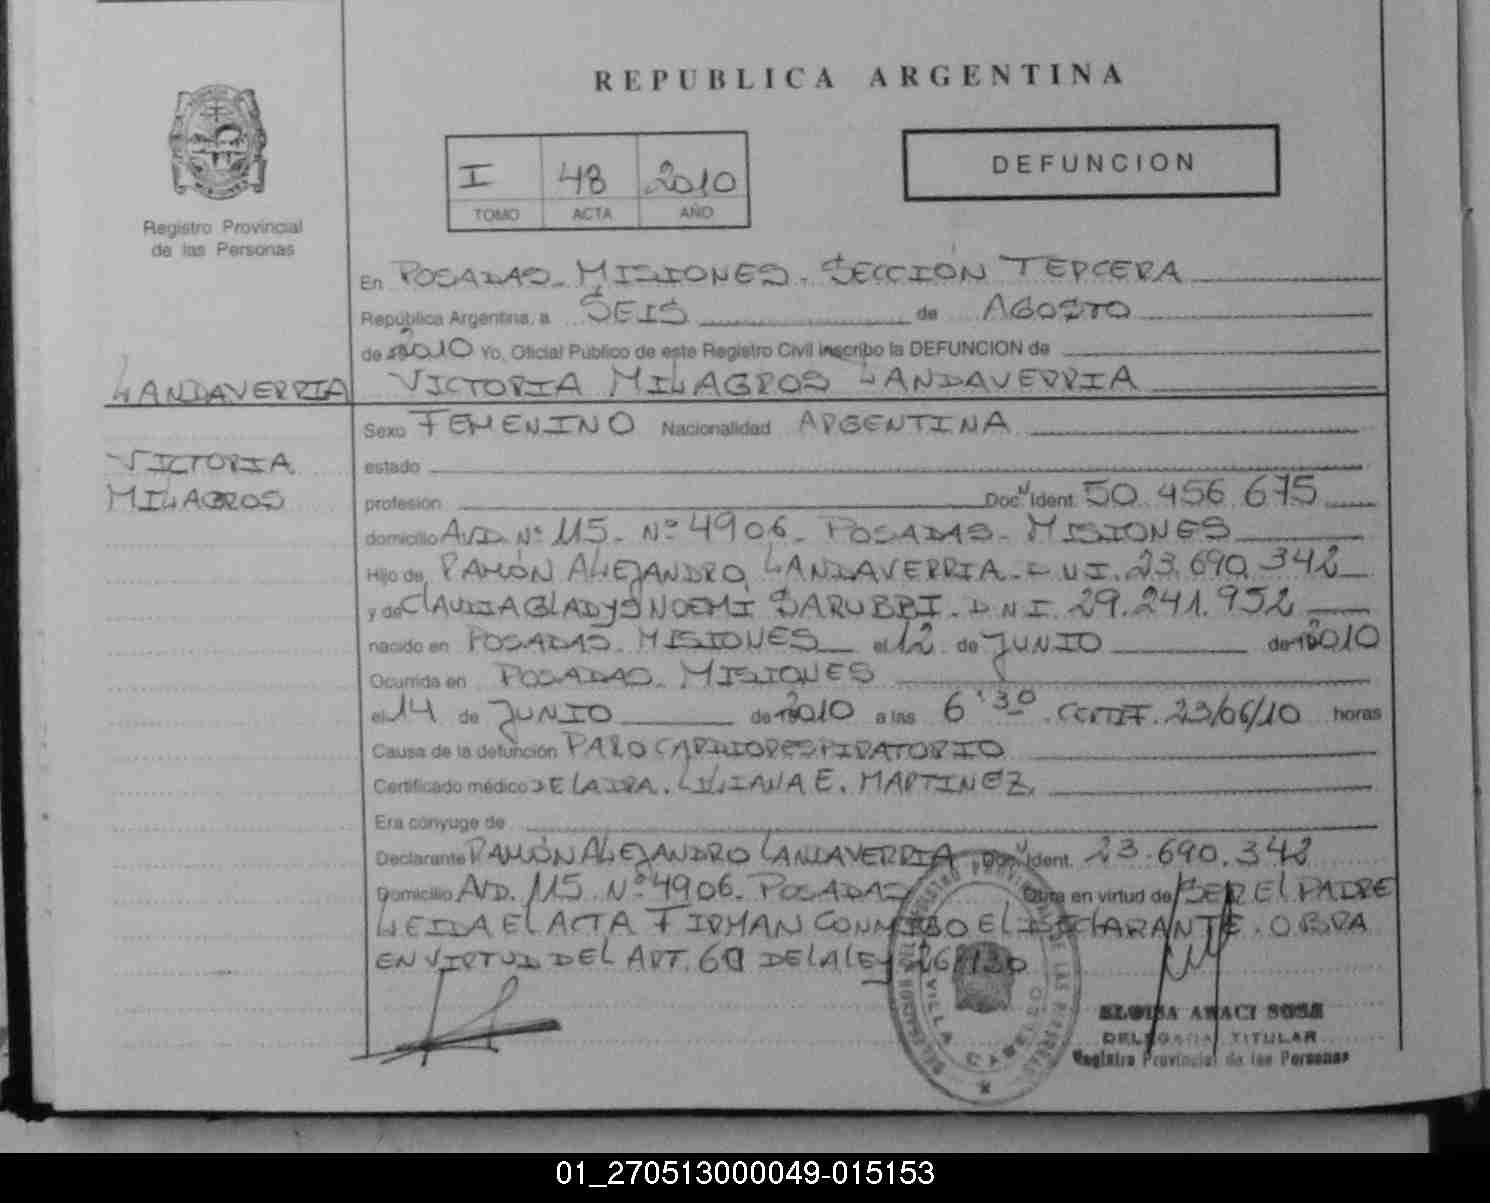 REPUBLICA ARGENTINA
I 48 2010
TOMO ACTA AÑO
DEFUNCION
Registro Provincial
de las Personas
En POSADAS - MISIONES. SECCIÓN TERCERA
República Argentina, a SEIS de AGOSTO
de 2010 Yo, Oficial Público de este Registro Civil inscribo la DEFUNCION de
LANDAVERRIA VICTORIA MILAGROS LANDAVERRIA
VICTORIA
MILAGROS
Sexo FEMENINO Nacionalidad ARGENTINA
estado
profesión Doc. Ident. 50.456.675
domicilio AVD. Nº 115 - Nº 4906 - POSADAS - MISIONES
Hijo de RAMÓN ALEJANDRO LANDAVERRIA - D.N.I. 23.690.342
y de CLAUDIA GLADYS NOEMI SARUBBI - D.N.I. 29.241.952
nacido en POSADAS - MISIONES el 12 de JUNIO de 2010
Ocurrida en POSADAS - MISIONES
el 14 de JUNIO de 2010 a las 6'30 CERTIF. 23/06/10 horas
Causa de la defunción PARO CARDIORESPIRATORIO
Certificado médico DE LA DRA. LILIANA E. MARTINEZ.
Era conyuge de
Declarante RAMÓN ALEJANDRO LANDAVERRIA Doc. Ident. 23.690.342
Domicilio AVD. 115 Nº 4906 - POSADAS Obra en virtud de SER EL PADRE
LEIDA EL ACTA FIRMAN CONMIGO EL DECLARANTE. OBRA
EN VIRTUD DEL ART. 60 DE LA LEY
ELOISA ARACI SOSA
DELEGADA TITULAR
Registro Provincial de las Personas
01_270513000049-015153